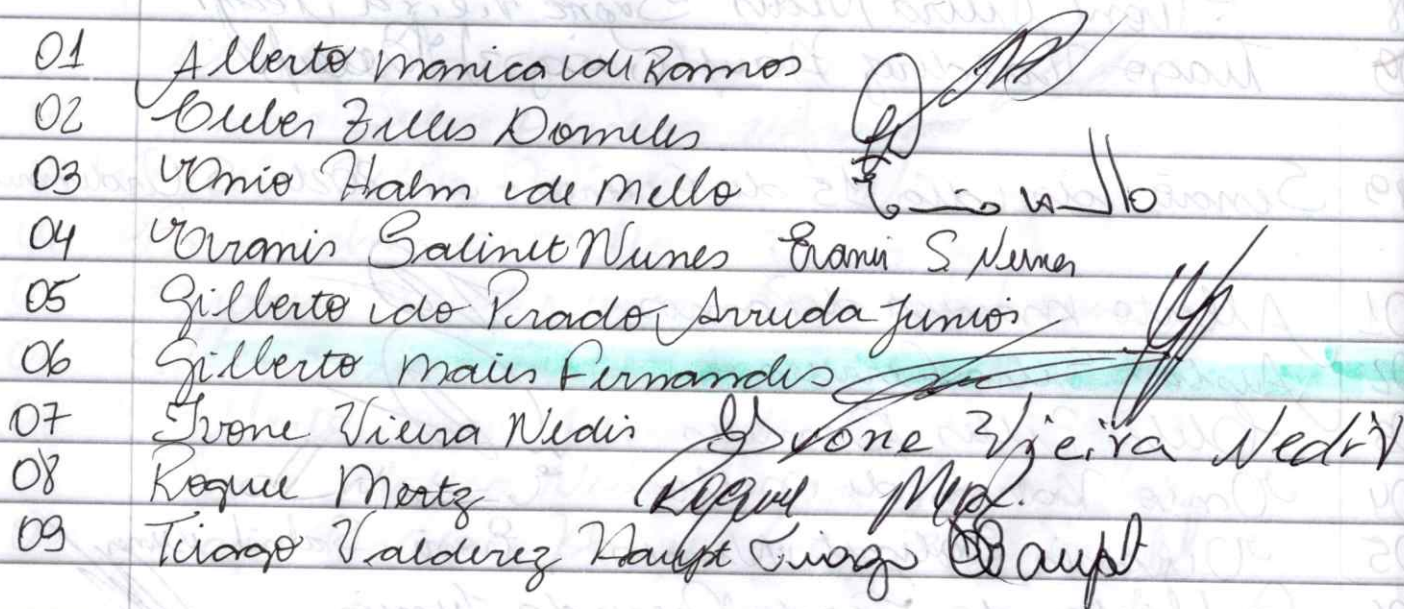 01 Alberto Monica de Ramos
02 Cleber Zilles Dorneles
03 Enio Hahn de Mello
04 Eranir Galinet Nunes Eranir S. Nunes
05 Gilberto do Prado Arruda Junior
06 Gilberto Maier Fernandes
07 Ivone Vieira Nedir Ivone Vieira Nedir
08 Roque Mertz Roque
09 Tiago Valderez Haupt Tiago Haupt